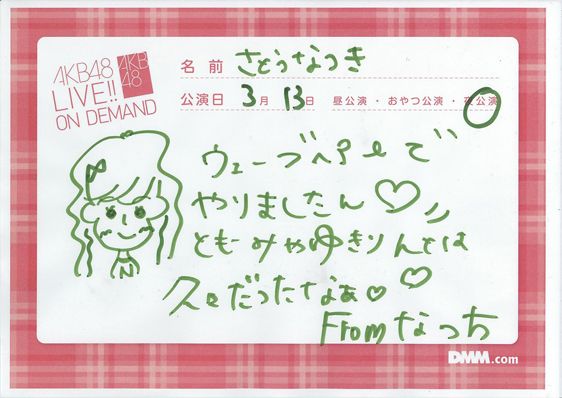 AKB48
LIVE!!
ON DEMAND
AKB
48
名前 さとうなつき
公演日 3月 13日 昼公演・おやつ公演・夜公演
ウェーブヘアーで
やりましたん♡
ともーみやゆきりんとは
久々だったなぁ♡♡
Fromなっち
N
DMM.com